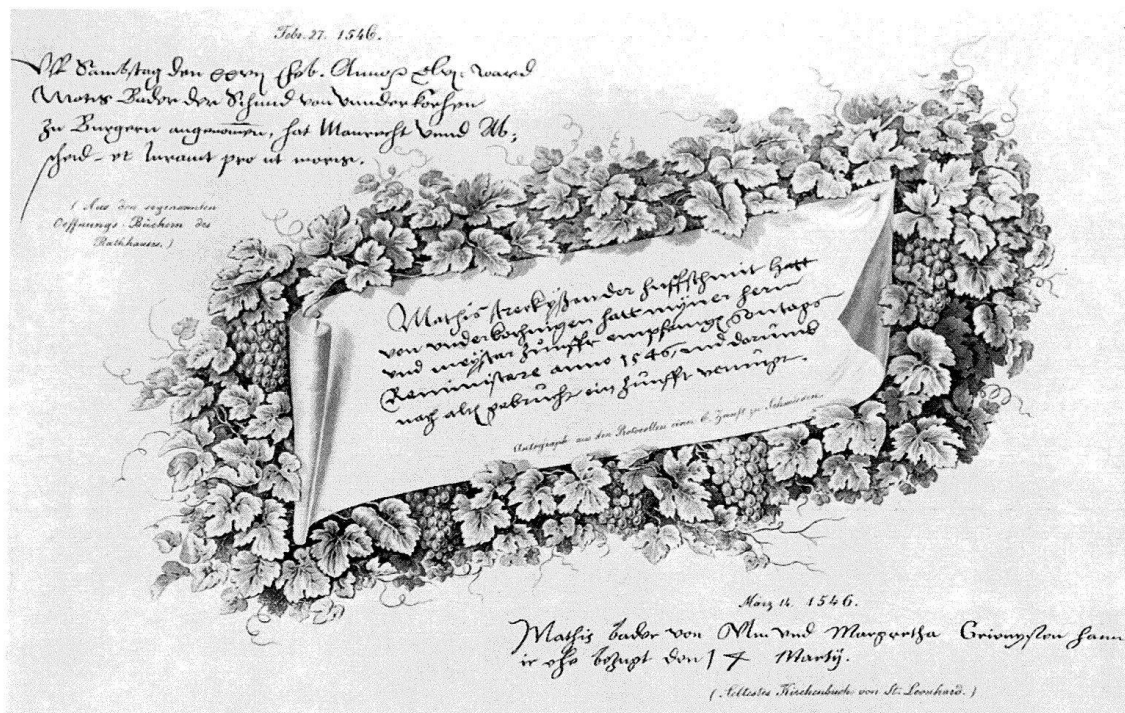 Febr. 27. 1546.
Vff Sambstag den xxvij Feb. Anno xlvj. ward
Matis Bader der Schmid von vnderkochen
zu Burgern angenomen, hat Manrecht vnnd Ab¬
scheid et iurauit pro ut moris.
( Aus den sogenannten
Oeffnungs-Büchern des
Rathhauses. )
Mathis der huffschmit hatt
von vnderkochingen hatt myner hern
vnd meyster zunfft empfangen Sontags
Reminiscere anno 1546 und darumb
nach alt gebrucht ein zunfft vernugt.
Autograph aus den Protocollen einer E. Zunft zu Schmieden.
März 14. 1546.
Mathis bader von Vlm vnd Margretha hann
ir ehe bezugt den 14 Martij.
( Aeltestes Kirchenbuch von St. Leonhard. )